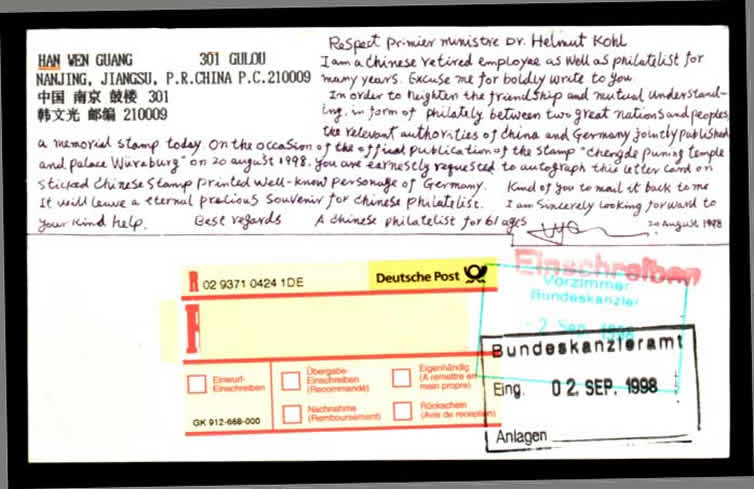 HAN WEN GUANG 301 GULOU
NANJING, JIANGSU, P.R.CHINA P.C.210009
中国 南京 鼓楼 301
韩文光 邮编 210009
Respect primier ministre Dr. Helmut Kohl
I am a chinese retired employee as well as philatelist for
many years. Excuse me for boldly write to you
In order to heighten the friendship and mutual understand-
ing, in form of philately between two great nations and peoples,
the relevant authorities of china and Germany jointly published
a memorial stamp today. On the occasion of the official publication of the stamp "chengde puning temple
and palace Würzburg" on 20 august 1998. you are earnestly requested to autograph this letter card on
sticked chinese stamp printed well-know personage of Germany. Kind of you to mail it back to me
It will leave a eternal precious souvenir for chinese philatelist. I am sincerely looking forward to
your kind help. Best regards A chinese philatelist for 61 ages 20 august 1998
R 02 9371 0424 1DE
Deutsche Post
R
Einwurf-
Einschreiben
Übergabe-
Einschreiben
(Recommandé)
Eigenhändig
(A remettre en
main propre)
Nachnahme
(Remboursement)
Rückschein
(Avis de reception)
GK 912-668-000
Einschreiben
Vorzimmer
Bundeskanzler
- 2. Sep. 1998
Bundeskanzleramt
Eing. 02. SEP. 1998
Anlagen